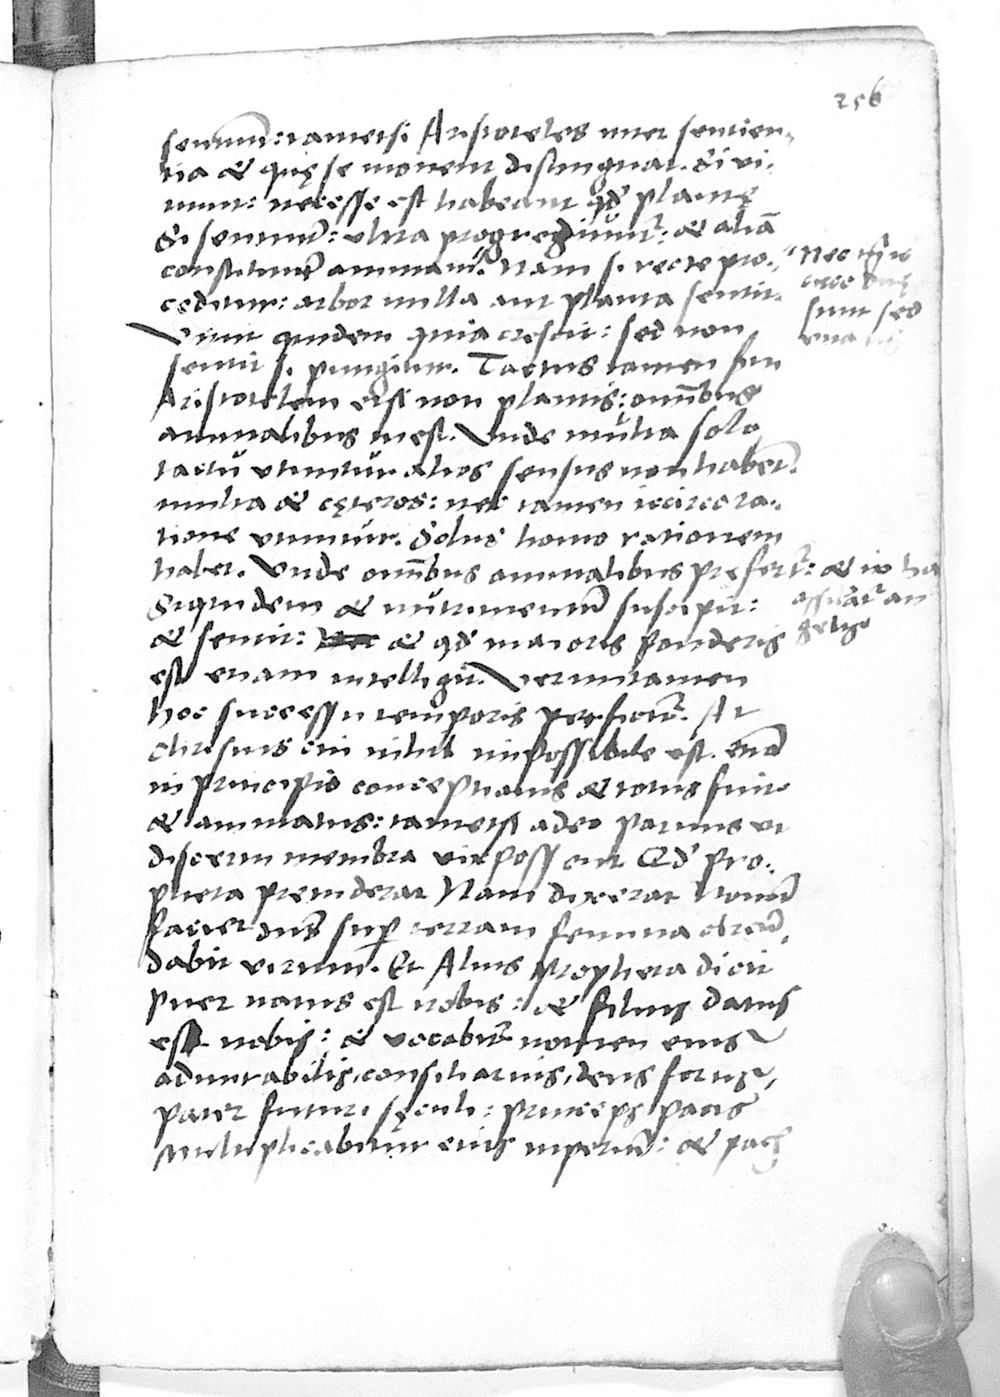 256
sentiunt: tametsi Aristoteles inter sentien-
tia & quę se movent distinguat. Si vi-
vunt: necesse est habeant qđ plantę
Si sentiunt: ultra progrediunt᷑: & aliā
constituunt animam. Nam si recte pro-
ceditur: arbor nulla aut planta sentit.
Vivit quidem quia crescit: sed non
sentit si pungitur. Tactus tamen scđm
Aristotelem etsi non plantis: omībus
animalibus inest. Unde multa solo
tactu utuntur. alios sensus non habent.
multa & cęteros: nec tamen iccirco ra-
tione utuntur. Solus homo rationem
habet. Unde omībus animalibus prefert᷑: & iō
Siquidem & nutrimentū suscipit:
& sentit: & qđ maioris ponderis
est etiam intelligit. Veruntamen
hoc successu temporis perficit᷑. At
christus cui nihil impossibile est. etiā
in principio conceptionis & totus fuit
& animatus: tametsi adeo parvus ut
discerni membra vix possent Qđ pro-
pheta previderat Nam dixerat Novū
faciet dn̄s sup terram femina circū-
dabit virum. Et Alius propheta dicit
Puer natus est nobis: & filius datus
est nobis: & vocabit᷑ nomen eius
admirabilis, consiliarius, deus fortis,
pater futuri sęculi: princeps pacis
Multiplicabitur eius imperiū: & pacis
Nec
circo duę
sunt sed
una
assilat᷑ an
gelis